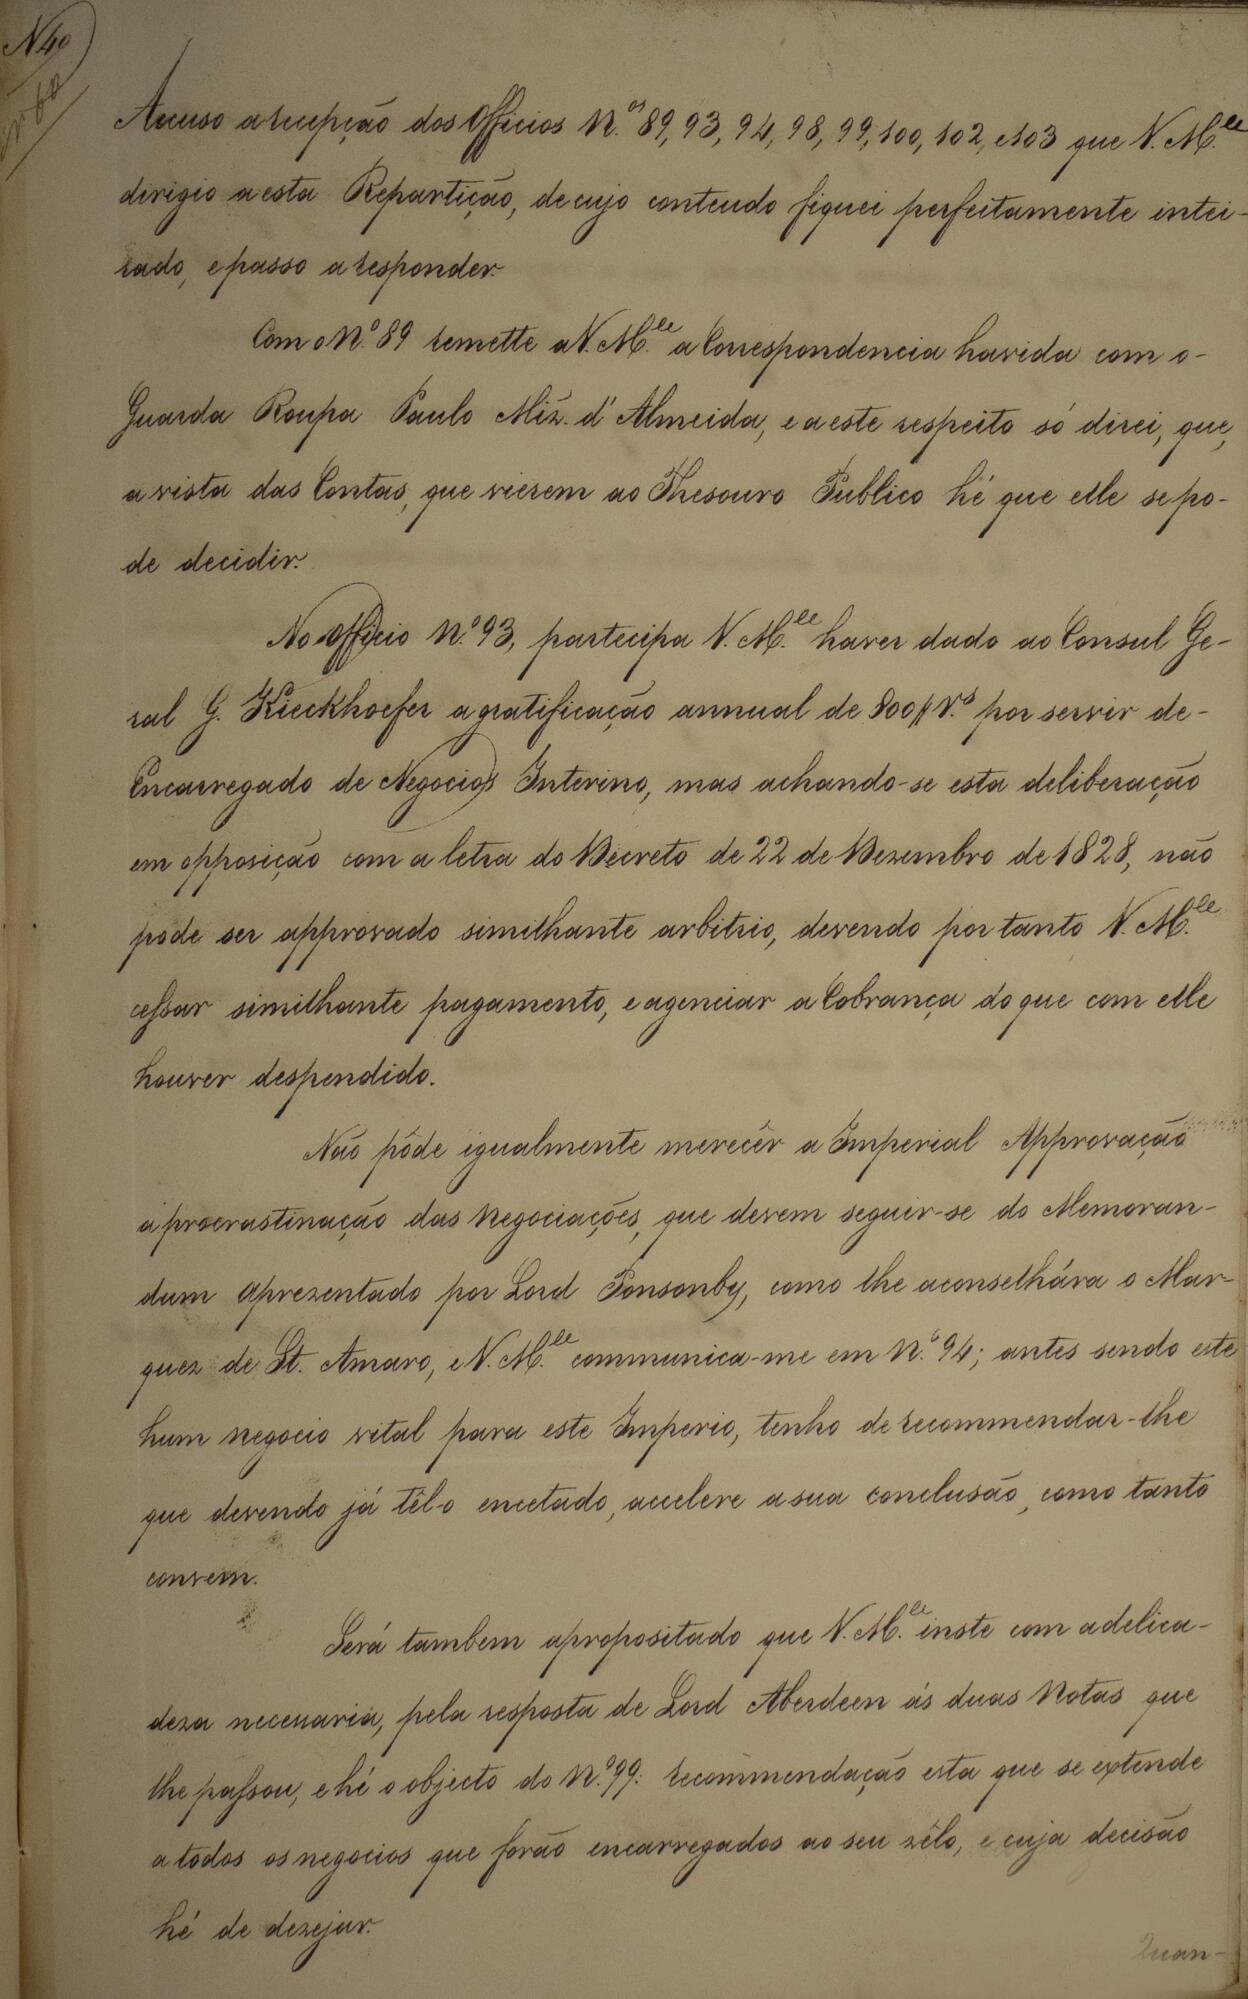 N 40
Accuso a recepção dos Officios N.os 89, 93, 94, 98, 99, 100, 102, e 103 que V. M.ce
dirigio a esta Repartição, de cujo conteudo fiquei perfeitamente intei-
rado, e passo a responder.
Com o N.o 89 remette a V. M.ce a Correspondencia havida com o-
Guarda Roupa Paulo Miz. d'Almeida, e a este respeito só direi, que,
a vista das Contas, que vierem ao Thesouro Publico hé que elle se po-
de decidir.
No officio N.o 93, partecipa V. M.ce haver dado ao Consul Ge-
ral G. Kieckhoefer a gratificação annual de 800$ r.s por servir de-
Encarregado de Negocios Interino, mas achando-se esta deliberação
em opposição com a letra do Decreto de 22 de Dezembro de 1828, não
pode ser approvado similhante arbitrio, devendo por tanto V. M.ce
cessar similhante pagamento, e agenciar a Cobrança do que com elle
houver despendido.
Não póde igualmente merecêr a Imperial Approvação
a procrastinação das Negociações, que devem seguir-se do Memoran-
dum aprezentado por Lord Ponsonby, como lhe aconselhára o Mar-
quez de St. Amaro, e V. M.ce communica-me em N.o 94; antes sendo este
hum negocio vital para este Imperio, tenho de recommendar-lhe
que devendo já têl-o encetado, accelere a sua conclusão, como tanto
convem.
Será tambem apropositado que V. M.ce inste com a delica-
deza necessaria, pela resposta de Lord Aberdeen ás duas Notas que
lhe passou, e hé o objecto do N.o 99: recommendação esta que se extende
a todos os negocios que forão encarregados ao seu zêlo, e cuja decisão
hé de dezejar.
Quan-